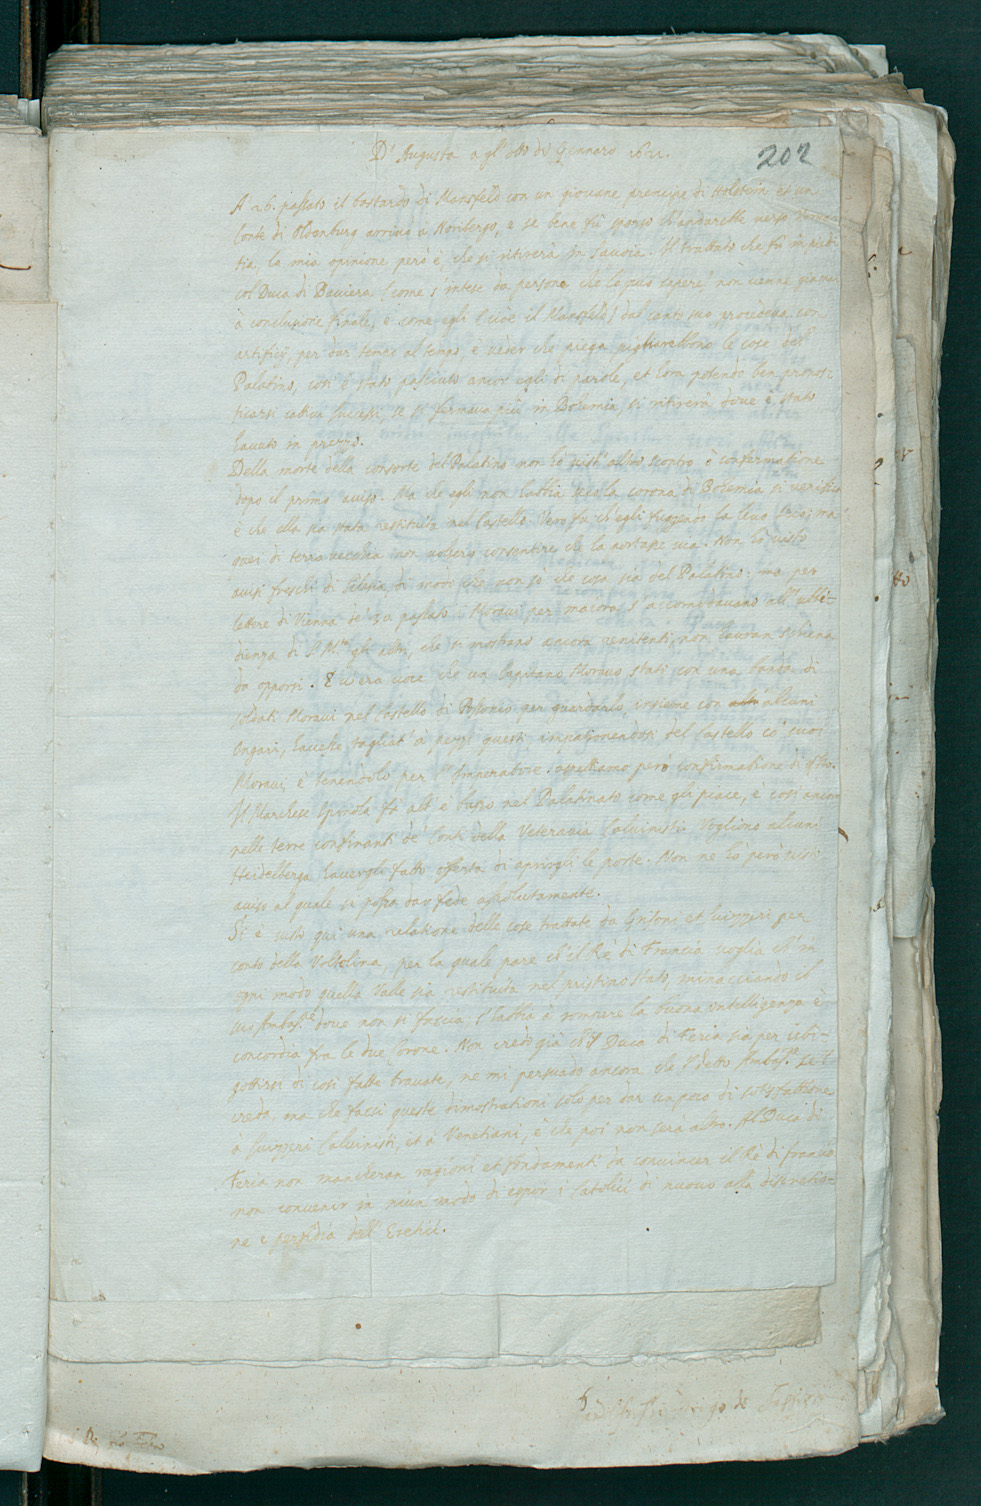 D'Augusta agl' otto di Gennaro 1621.
202
A 26. passato il bastardo di Mansfeld con un giovane prencipe di Holstein et un
Conte di Oldenburg arrivò à Noribergo, e se bene fù sparso ch'andarebbe verso
tia, la mia opinione però è, che si ritirerà in Savoia. Il trattato che fù in piedi
col Duca di Baviera (come s'intese da persona che lo può sapere) non venne giamai
à conclusione finale, e come egli (cioè il Mansfeld) dal canto suo procedeva con
artificij, per dar tempo al tempo, e veder che piega pigliarebbono le cose del
Palatino, così è stato pasciuto ancor egli di parole, et hora potendo ben pronos
ticarsi cattivi successi, se si fermava più in Bohemia, si ritirerà dove è stato
havuto in prezzo.
Della morte della consorte del Palatino non hò visto altro scontro ò confermatione
dopo il primo aviso. Ma che egli non habbia seco la corona di Bohemia si verifica
e che ella sia stata restituita nel Castello. Vero fu ch'egli fuggendo la levò
quei di terra vecchia non volsero consentire che la portasse via. Non hò visto
avisi freschi di Silesia, di modo che non so che cosa sia del Palatino: ma per
lettere di Vienna de' 30 passato i Moravi per macora s'accomodavano all' ubbi-
dienza di S. M.tà gli altri, che si mostrano ancora renitenti, non havran schiena
da opporsi. E v'era voce che un Capitano Moravo stato con una banda di
soldati Moravi nel Castello di Possonio per guardarlo, insieme con alcuni
Ongari, havesse tagliati à pezzi questi, impatronendosi del Castello co' suoi
Moravi, e tenendolo per l'Imperatore. aspettiamo però confirmatione di
Il Marchese Spinola fà alt' e basso nel Palatinato come gli piace, e così ancora
nelle terre confinanti de' Conti della Veteravia Calvinisti. Vogliono alcuni
Heidelberga havergli fatto offerta di aprirgli le porte. Non ne hò però visto
aviso al quale si possa dar fede assolutamente.
Si è visto qui una relatione delle cose trattate da Grisoni et Svizzeri per
conto della Voltolina, per la quale pare ch'il Rè di Francia voglia ch'in
ogni modo quella Valle sia restituita nel pristino stato, minacciando il
suo Ambas.re dove non si faccia, s'habbia à rompere la buona intelligenza e
concordia fra le due Corone. Non credo già ch'il Duca di Feria sia per isbi-
gottirsi di così fatte bravate, ne mi persuado ancora che l' detto Ambas.re se l
creda, ma che facci queste dimostrationi solo per dar un poco di sodisfattione
à Svizzeri Calvinisti, et à Venetiani, e che poi non sera altro. Al Duca di
Feria non mancheran ragioni et fondamenti da convincer il Rè di Francia
non convenir in niun modo di espor i Catolici di nuovo alla discretio-
ne e perfidia dell'